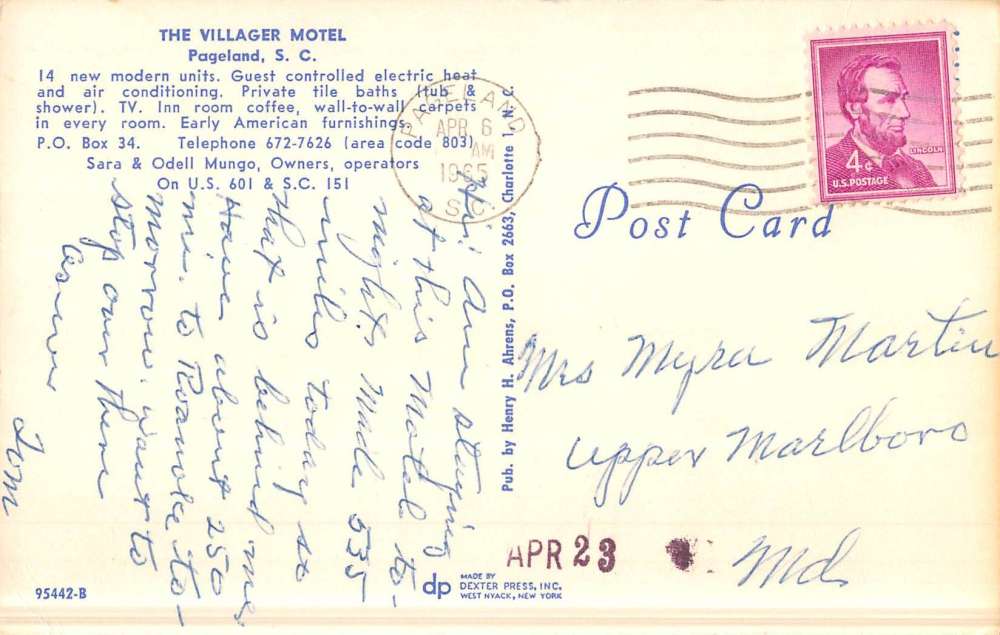 THE VILLAGER MOTEL
Pageland, S. C.
14 new modern units. Guest controlled electric heat
and air conditioning. Private tile baths (tub &
shower). TV. Inn room coffee, wall-to-wall carpets
in every room. Early American furnishings.
P.O. Box 34. Telephone 672-7626 (area code 803)
Sara & Odell Mungo, Owners, operators
On U.S. 601 & S.C. 151
Hi! Am staying
at this Motel to-
night. Made 535
miles today so
that is behind me.
Have about 250
mi. to Roanoke to-
morrow. want to
stop over there
Tom
95442-B
Pub. by Henry H. Ahrens, P.O. Box 2663, Charlotte 1, N. C.
PAGELAND
APR 6
AM
1965
S.C.
LINCOLN
4c
U.S. POSTAGE
Post Card
Mrs Myra Martin
Upper Marlboro
Md
APR 23
dp
MADE BY
DEXTER PRESS, INC.
WEST NYACK, NEW YORK